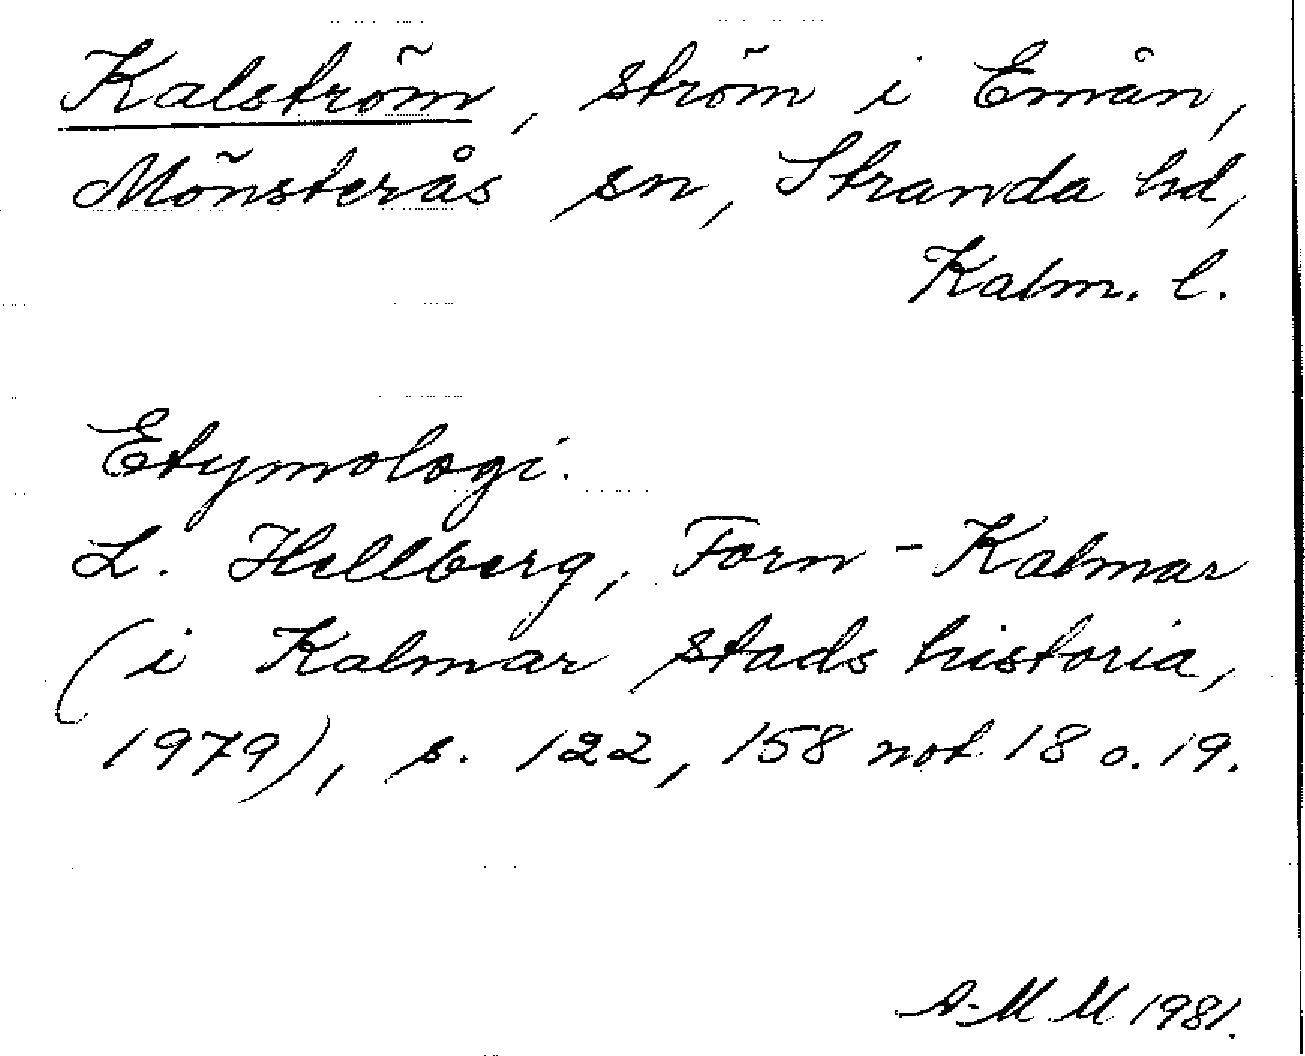 Kalström, ström i Emån,
Mönsterås sn, Stranda hd,
Kalm. l.
Etymologi.
L. Hellberg, Forn-Kalmar
(i Kalmar stads historia,
1979), s. 122, 158 not 18 o. 19.
A-M M 1981.